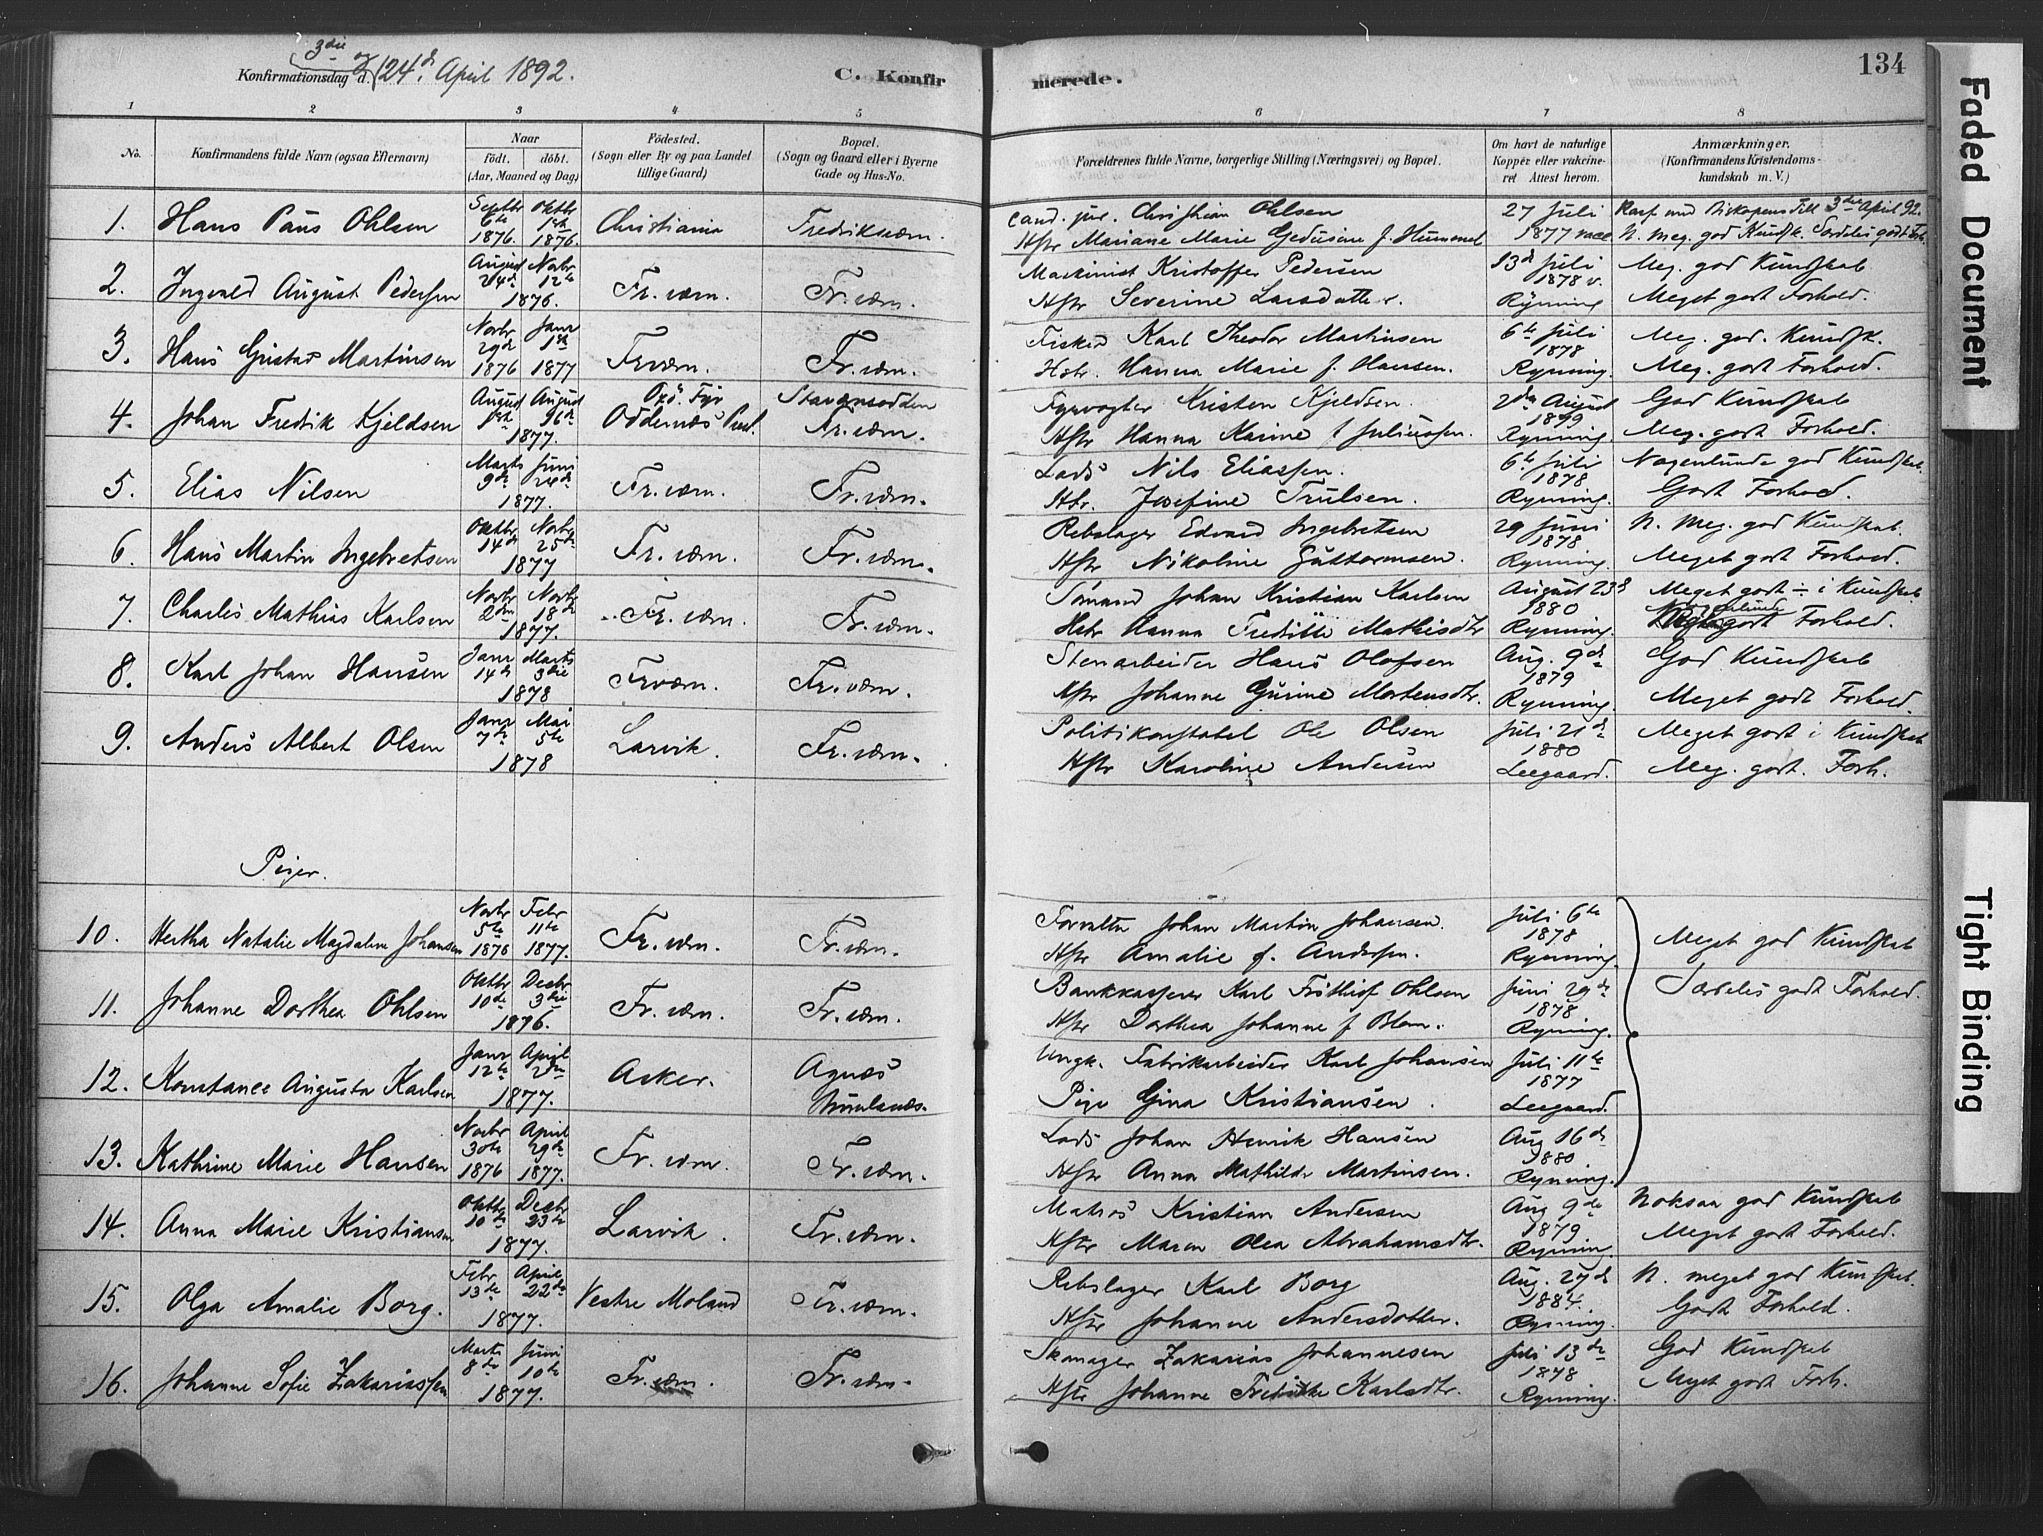 3die og
Konfirmationsdag d. 24d. April 1892.
C. Konfirmerede.
134
1 2 3 4 5 6 7 8
No.
Konfirmandens fulde Navn (ogsaa Efternavn)
Naar
født. døbt.
(Aar, Maaned og Dag)
Fødested.
(Sogn eller By og paa Landet
tillige Gaard)
Bopæl.
(Sogn og Gaard eller i Byerne
Gade og Hus-No.
Forældrenes fulde Navne, borgerlige Stilling (Næringsvei) og Bopæl.
Om havt de naturlige
Kopper eller vakcine-
ret Attest herom.
Anmærkninger.
(Konfirmandens Kristendoms-
kundskab m. V.)
1. Hans Paus Ohlsen Septbr 6te 1876. Oktbr 1876. Christiania Fredriksværn.
Cand. jur. Christian Ohlsen 27 Juli
Hstr Mariane Marie f. Hummel 1877 vacc N. meg. god Kundsk. Særdeles godt Forh.
3die April 92.
2. Ingvald August Pedersen August 24d Novbr 12te 1876. Fr.værn. Fr.værn.
Maskinist Kristoffer Pedersen 13d Juli Meg. god Kundskab
Hstr Severine Larsdatter. 1878 v. Rynning Meget godt Forhold.
3. Hans Gustav Martinsen Novbr 29de 1876 Janr 1877 Frværn. Fr.værn.
Fisker Karl Theodor Martinsen 6te Juli Meg. god. Kundsk.
Hstr. Hanna Marie f. Hansen. 1878 Rynning. Meg. godt Forhold.
4. Johan Fredrik Kjeldsen August August 1877. Oxö Fyr Oddernæs Præst. Stavernsodden Fr.værn.
Fyrvogter Kristen Kjeldsen. August God Kundskab
Hstr Hanna Karine f Juliussen. Rynning. Meg. godt Forhold.
5. Elias Nilsen Marts 9de Juni 1877. Fr.værn. Fr.værn.
Lods Nils Eliassen. 6te Juli Nogenlunde god Kundskab.
Hstr. Josefine Trulsen. 1878 Rynning. Godt Forhold.
6. Hans Martin Ingebretsen Oktbr 14de Novbr 25de 1877 Fr.værn. Fr.værn.
Rebslager Edvard Ingebretsen 29 Juni N. Meg. god Kundskab.
Hstr Nikoline Guttormsen. 1878 Rynning. Meget godt Forhold.
7. Charles Mathias Karlsen Novbr 2den Novbr 18de 1877. Fr.værn. Fr.værn.
Sømand Johan Kristian Karlsen August 23d Meget godt ÷ i Kundskab.
Hstr Hanna Fredrikke Mathisdtr 1880 Rynning. Nogenlunde godt Forhold.
8. Karl Johan Hansen Janr 14de Marts 3die 1878 Frværn. Fr.værn.
Stenarbeider Hans Olofsen Aug. 9de God Kundskab
Hstr Johanne Gurine Mortensdtr. 1879 Rynning. Meget godt Forhold.
9. Anders Albert Olsen Janr 7de Mai 5te 1878 Larvik. Fr.værn.
Politikonstabel Ole Olsen Juli 21de Meget godt i Kundskab
Hstr Karoline Andersen 1880 Leegaard. Meg. godt. Forh.
Piger.
10. Hertha Natalie Magdalene Johansen Novbr 5te 1876 Febr 11te 1877. Fr.værn. Fr.værn.
Forvalter Johan Martin Johansen. Juli 6te
Hstr Amalie f. Andersen. 1878 Rynning. Meget god Kundskab
11. Johanne Dorthea Ohlsen Oktbr 10de Decbr 3die 1876. Fr.værn. Fr.værn.
Bankkasserer Karl Frithjof Ohlsen Juni 29de Særdeles godt Forhold.
Hstr Dorthea Johanne f Blom. 1878 Rynning.
12. Konstance Augusta Karlsen Janr 12te April 2den 1877. Asker. Agnes Brunlanæs.
Ungk. Fabrikarbeider Karl Johansen Juli 11te
Pige Gina Kristiansen. 1877 Leegaard.
13. Kathrine Marie Hansen Novbr 30te 1876 April 29de 1877. Fr.værn. Fr.værn.
Lods Johan Henrik Hansen Aug 16de
Hstr Anna Mathilde Martinsen. 1880 Rynning.
14. Anna Marie Kristiansen Oktbr 10de Decbr 23de 1877. Larvik. Fr.værn.
Matros Kristian Andersen Aug 9de Noksaa god Kundskab
Hstr Maren Olea Abrahamsdtr. 1879 Rynning. Meget godt Forhold.
15. Olga Amalie Borg. Febr 13de April 22de 1877. Vestre Moland Fr.værn.
Rebslager Karl Borg Aug. 27d N. meget god Kundskab.
Hstr Johanne Andersdotter. 1884. Rynning. Godt Forhold.
16. Johanne Sofie Zakariassen Marts 8de Juni 10de 1877. Fr.værn. Fr.værn.
Skomager Zakarias Johannesen Juli 13de God Kundskab
Hstr Johanne Fredrikke Karlsdtr. 1878 Rynning. Meget godt Forh.
Faded Document
Tight Binding